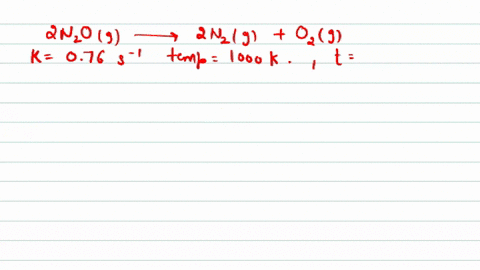 2N₂O(g) ⟶ 2N₂(g) + O₂(g)
K = 0.76 s⁻¹ temp = 1000 k. , t =